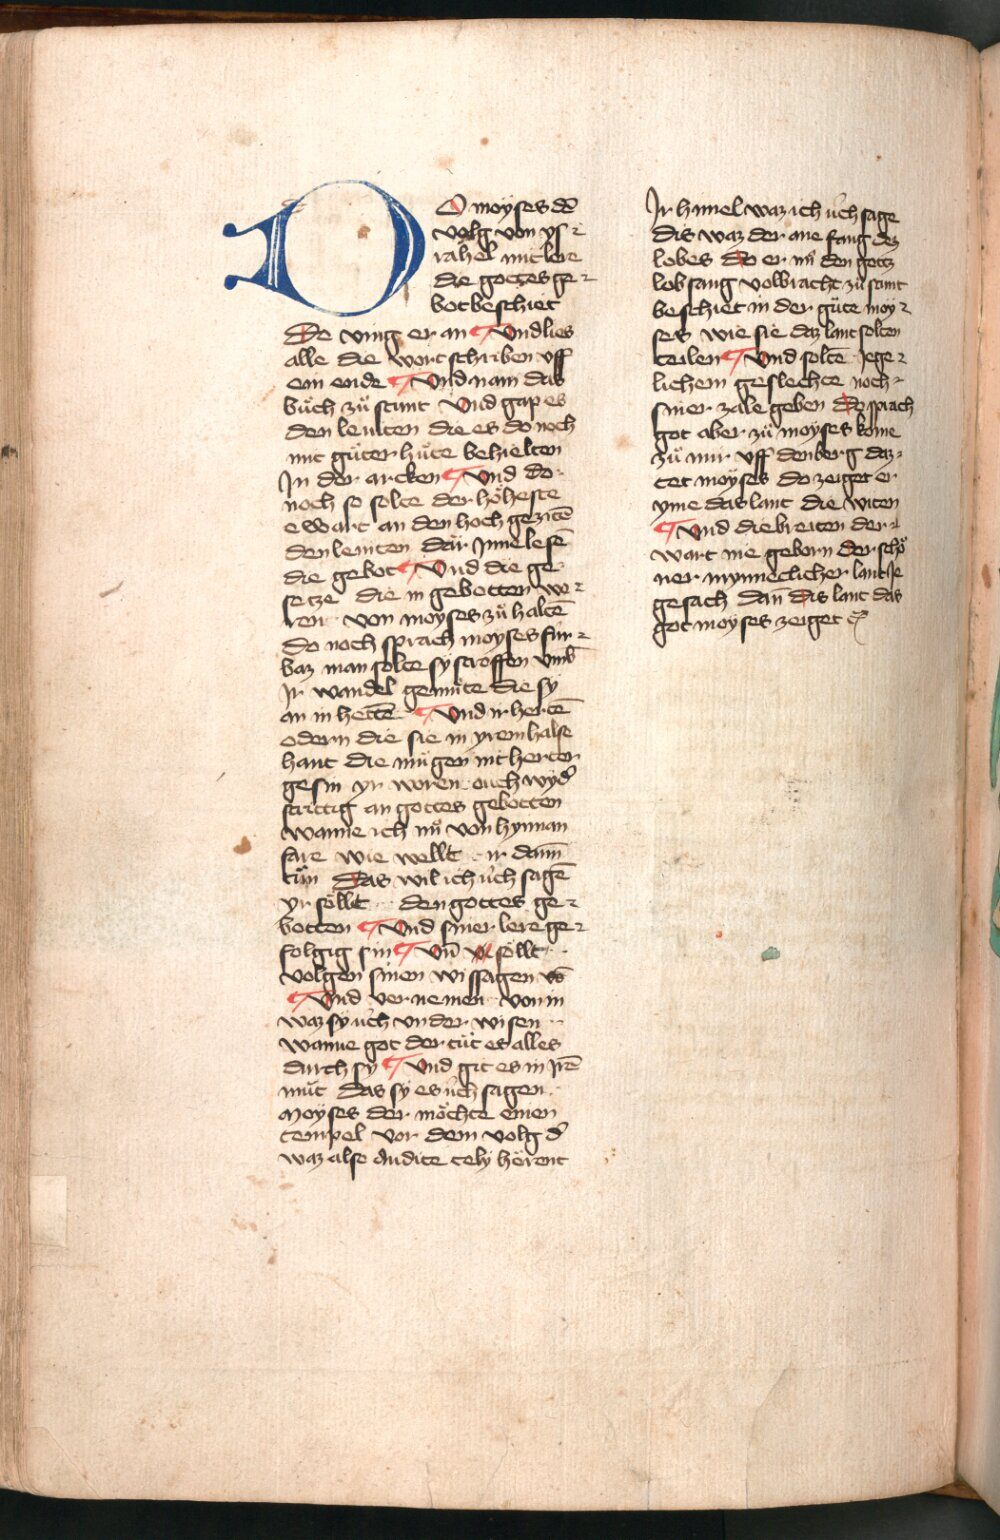 DO moyses dē
volg von ys⸗
rahel mit lere
die gottes ge⸗
bot beschiet
Do ving er an ¶ Und lies
alle die wort schriben vff
ein ende ¶ Und nam das
bůch zů stunt Und gap es
den leuiten die es do noch
mit gůter hůte behielten
In der arcken ¶ Und do
noch so solte der höheste
ewart an den hoch gezitē
den leuiten dar Inne lesē
die gebot ¶ Und die ge
setze die in gebotten we⸗
ren von moyses zů haltē
do noch sprach moyses fúr⸗
baz man solte sy stroffen vmb
Ir wandel gemůte die sy
an in hettē ¶ Und ir hertē
odern die sie in yrem halse
hant die mugen nit herter
gesin yr woren ouch wyd᷑
strittig an gottes gebotten
wanne ich nů von hynnan
fare wie wellt ir dann
tůn Das wil ich úch sagē
yr söllt den gottes ge⸗
botten ¶ Und siner lere ge⸗
folgig sin ¶ Uñ söllt
volgen sinen wissagen
¶ Und vernemen von in
waz sy úch vnder wisen
wanne got der tůt es alles
durch sy ¶ Und git es in Irē
můt das sy es úch sagen
Moyses der möchte einen
tempel vor dem volg d᷑
waz also Audite cely hörent
Ir himel waz ich úch sage
dis waz der ane fang dez
lobes do er nů den gottz
lob sang volbracht zů stunt
beschiet in der gůte moy⸗
ses wie sie daz lant solten
teilen ¶ Und soltē Jege⸗
lichem geslechte noch
siner zale geben Do sprach
got aber zů moyses kome
zů mir vff den berg daz
tet moyses do zeiget er
yme das lant die witen
¶ Und die breiten der
wart nie geborn der schö
ner mynneclicher lant Ie
gesach dañ dis lant das
got moyses zeiget